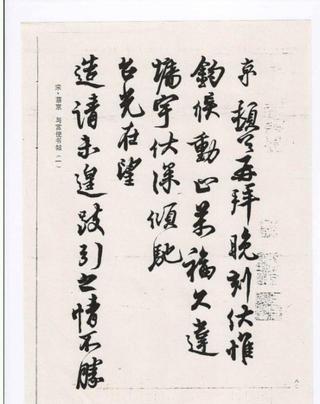 京 頓首再拜晚刻伏惟
鈞候動止萬福久違
墻宇伏深傾馳
台光在望
造請未遑跂引之情不勝
宋·蔡京 与宫使书帖(一)